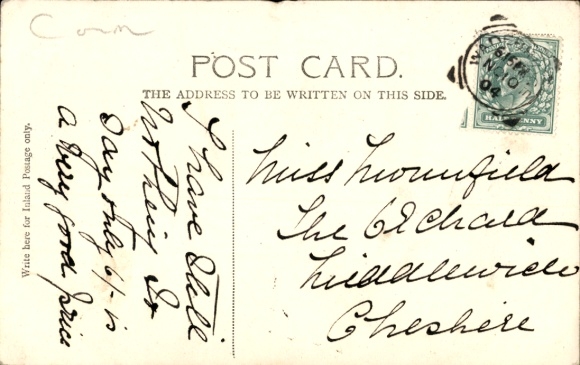 Corn
POST CARD.
THE ADDRESS TO BE WRITTEN ON THIS SIDE.
HALFPENNY
NO 10
04
Write here for Inland Postage only.
I have still
nothing to
say only 6/- is
a very good price
Miss Mounfield
The Orchard
Middlewich
Cheshire